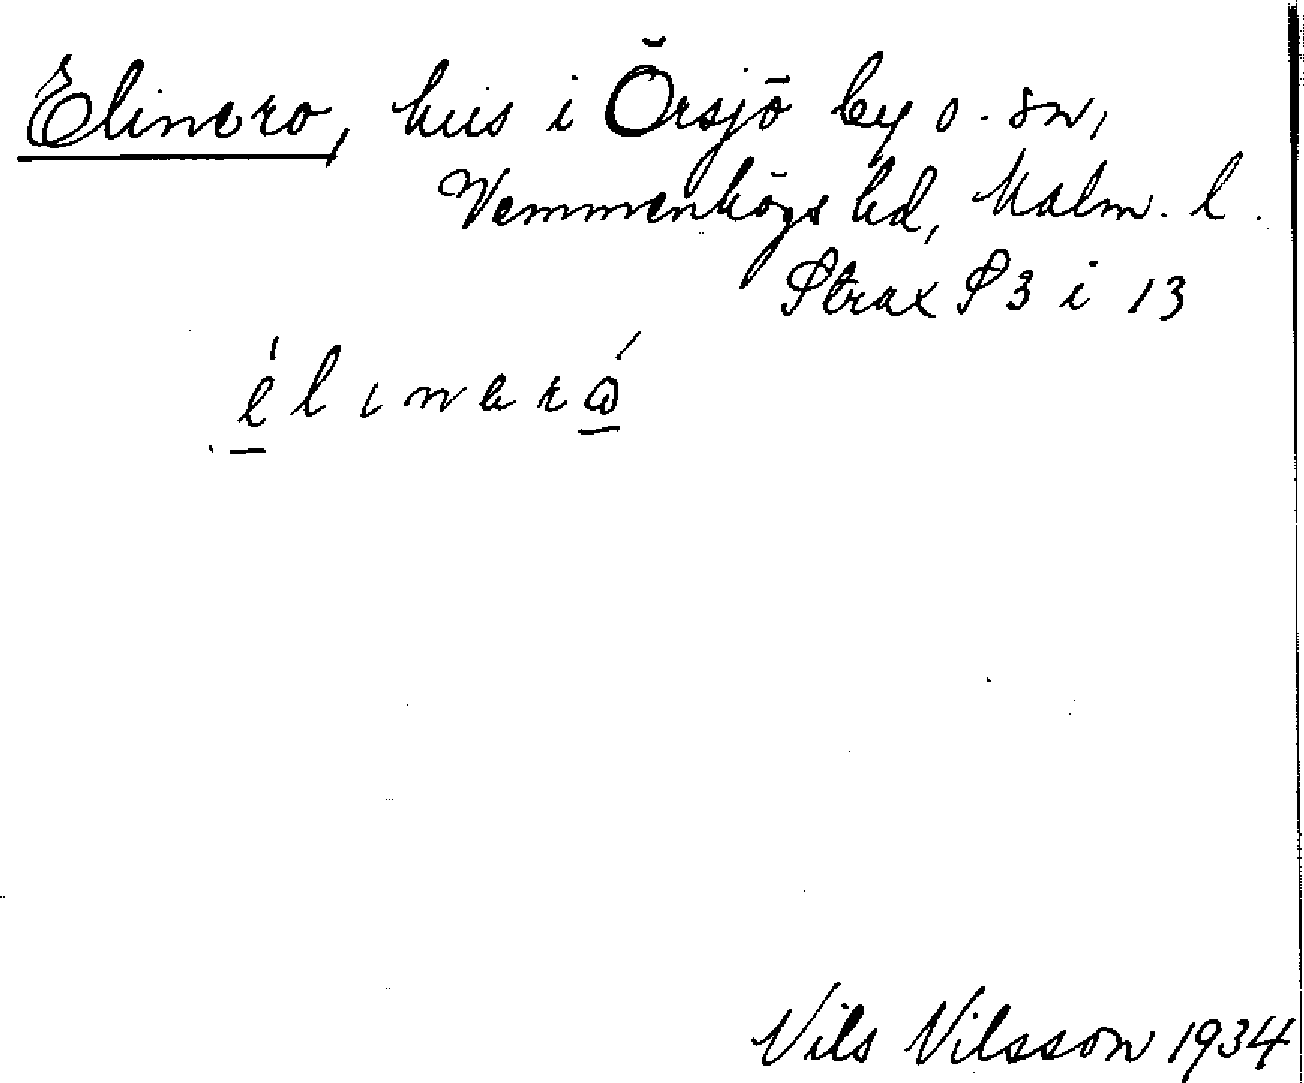 Elinero, hus i Örsjö by o. sn,
Vemmenhögs hd, Malm. l.
Strax S 3 i 13
élɩnəró
Nils Nilsson 1934